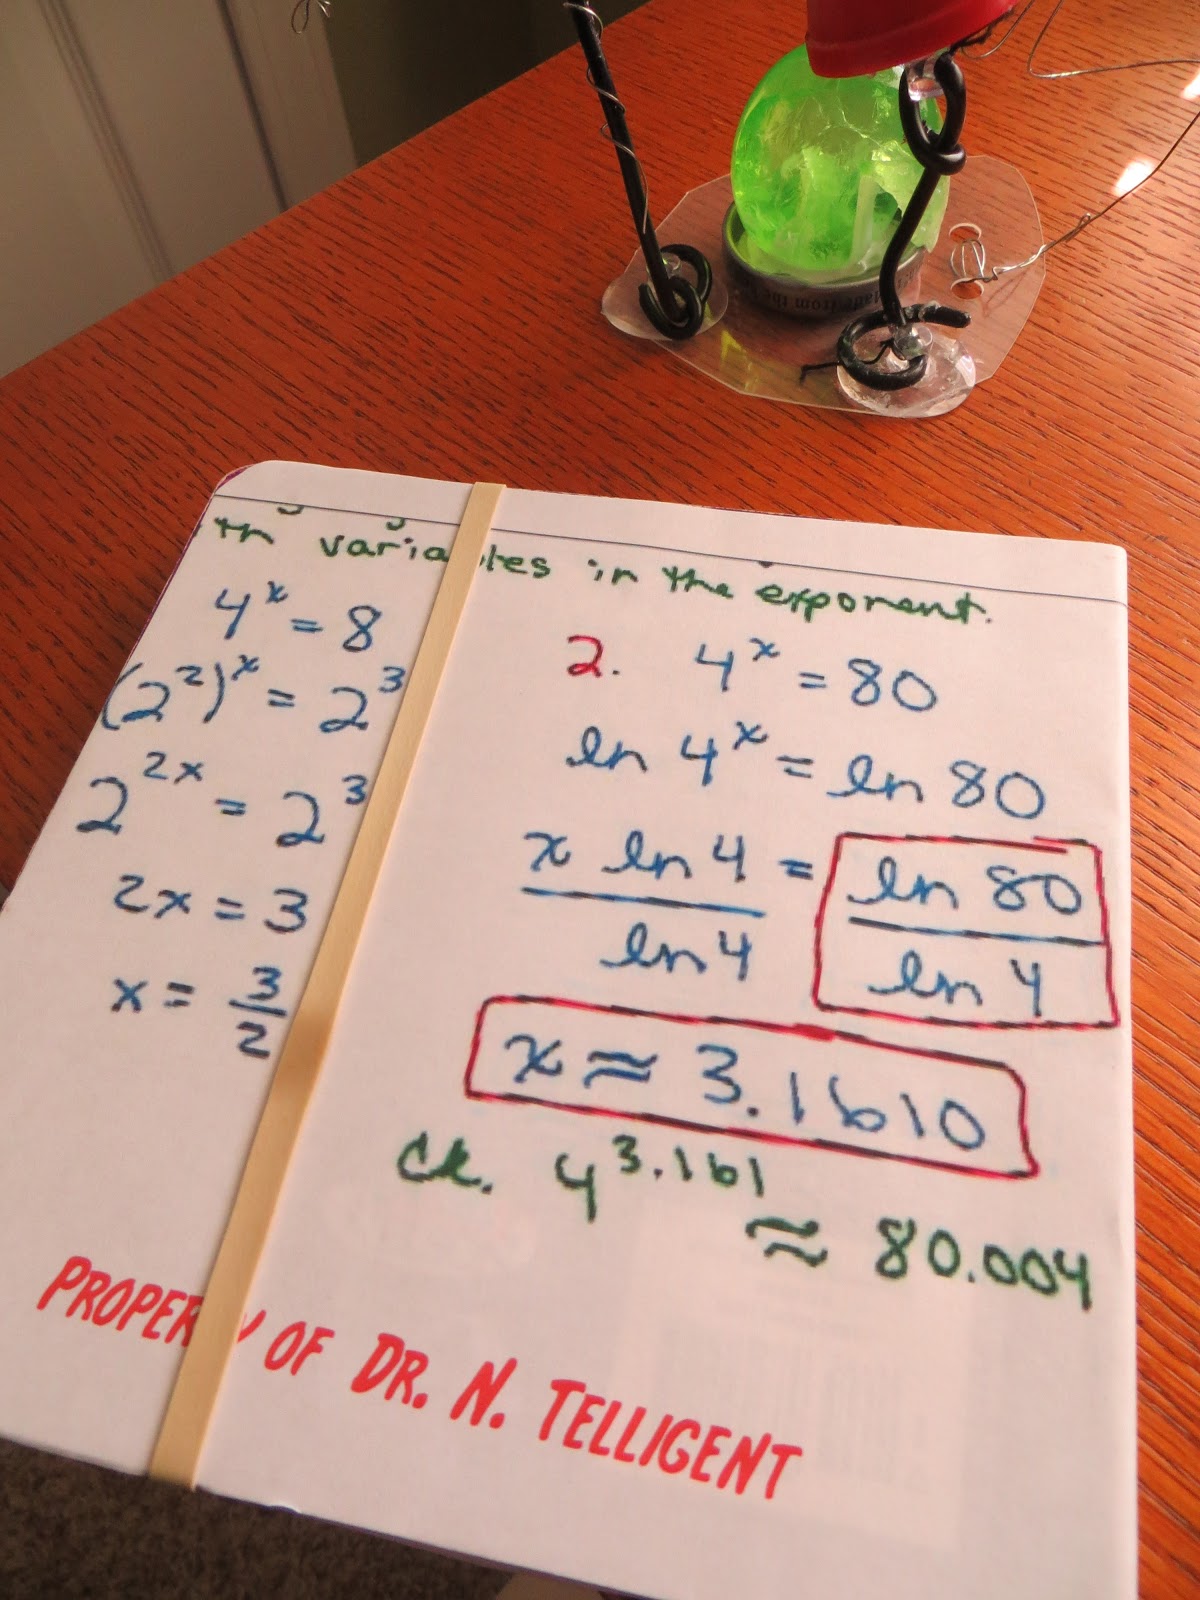 th variables in the exponent.
4^x = 8
(2^2)^x = 2^3
2^2x = 2^3
2x = 3
x = 3/2
2. 4^x = 80
ln 4^x = ln 80
x ln 4 / ln 4 = ln 80 / ln 4
x ≈ 3.1610
ck. 4^3.161
≈ 80.004
PROPERTY OF DR. N. TELLIGENT
made from the